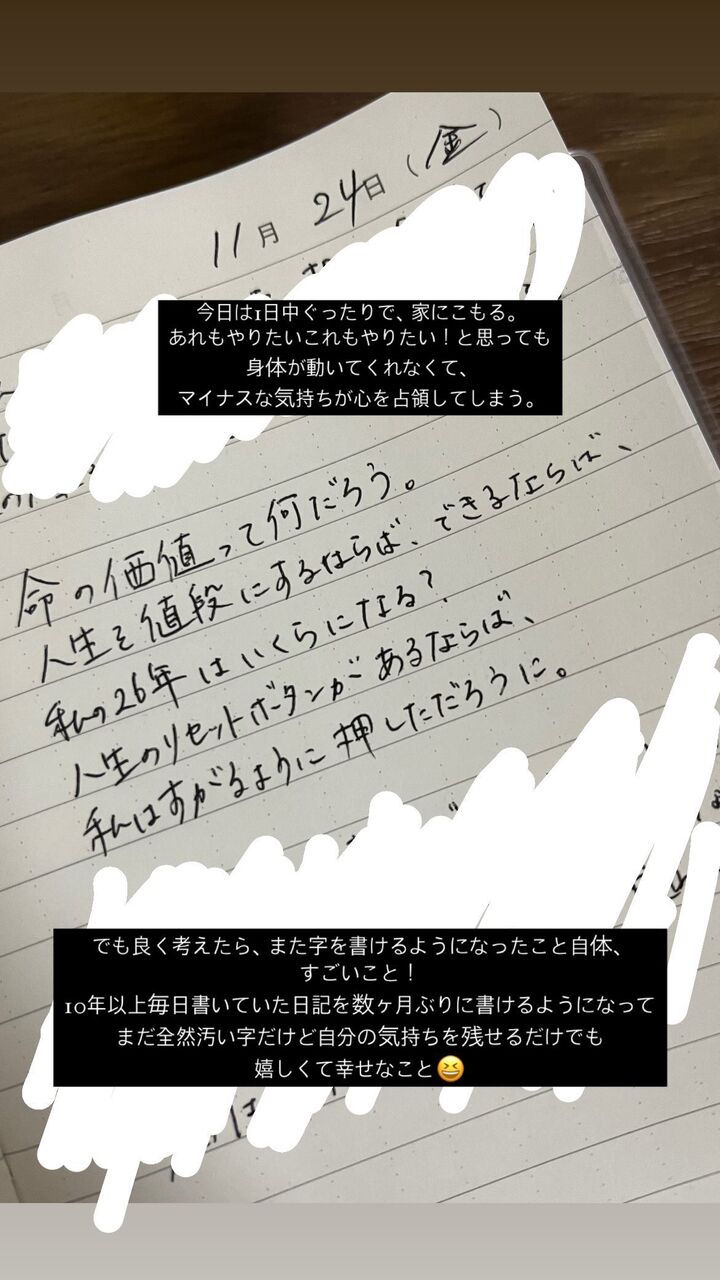 11月 24日 (金)
今日は1日中ぐったりで、家にこもる。
あれもやりたいこれもやりたい！と思っても
身体が動いてくれなくて、
マイナスな気持ちが心を占領してしまう。
命の価値って何だろう。
人生を値段にするならば、できるならば、
私の26年はいくらになる？
人生のリセットボタンがあるならば、
私はすがるように押しただろうに。
でも良く考えたら、また字を書けるようになったこと自体、
すごいこと！
10年以上毎日書いていた日記を数ヶ月ぶりに書けるようになって
まだ全然汚い字だけど自分の気持ちを残せるだけでも
嬉しくて幸せなこと😆